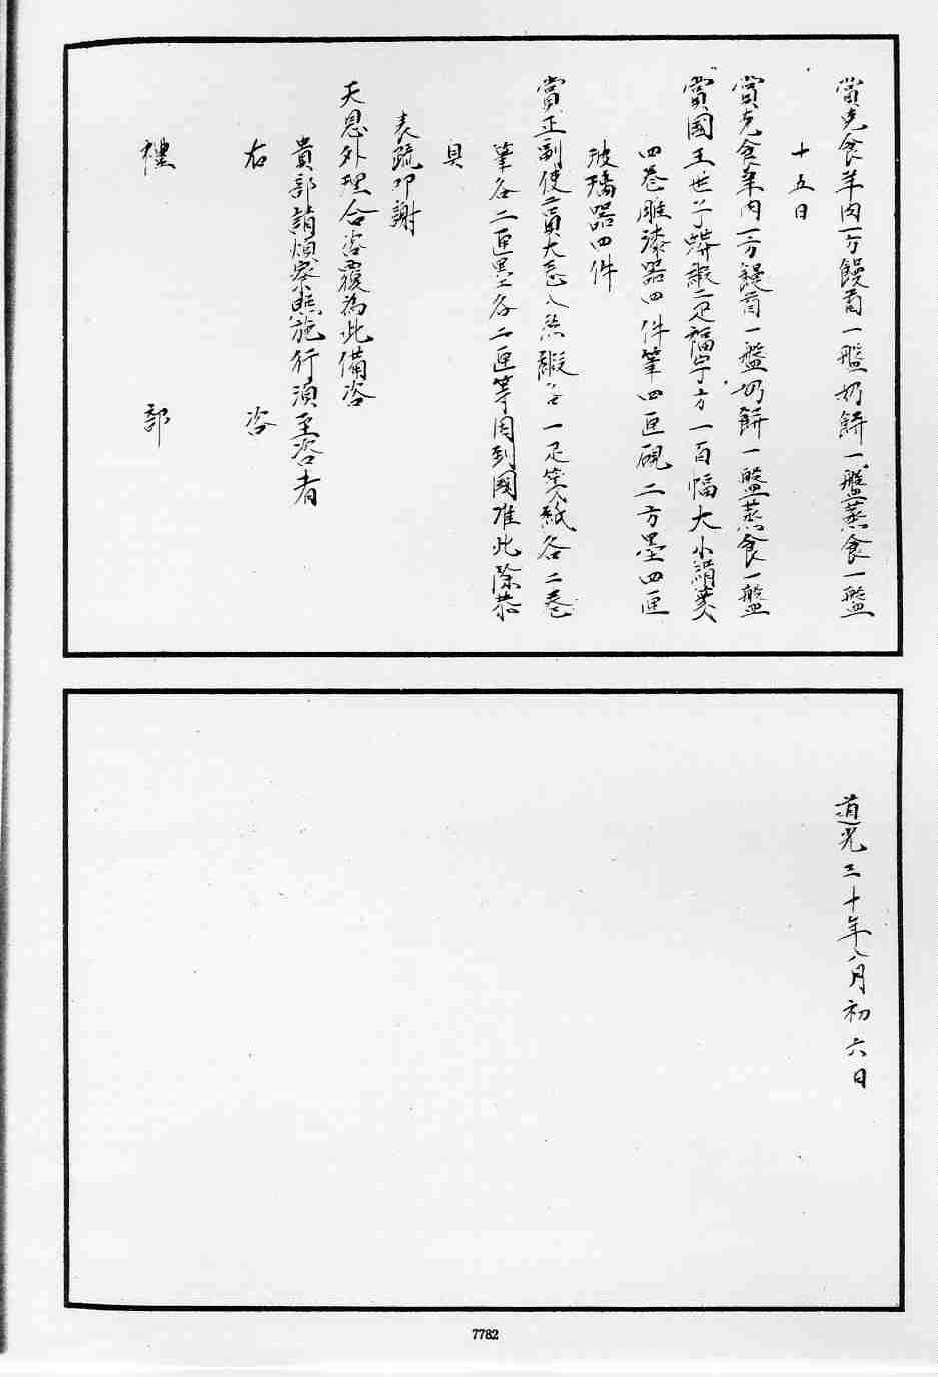 賞克食羊肉一方饅首一盤奶餅一盤蒸食一盤
十五日
賞克食羊肉一方饅首一盤奶餅一盤蒸食一盤
賞國王世子蟒緞二疋福字方一百幅大小絹箋
四卷雕漆器四件筆四匣硯二方墨四匣
玻璃器四件
賞正副使二員大卷八絲緞各一疋箋紙各二卷
筆各二匣墨各二匣等因到國准此除恭
具
表疏叩謝
天恩外理合咨覆為此備咨
貴部請煩察照施行須至咨者
右咨
禮部
道光三十年八月初六日
7782